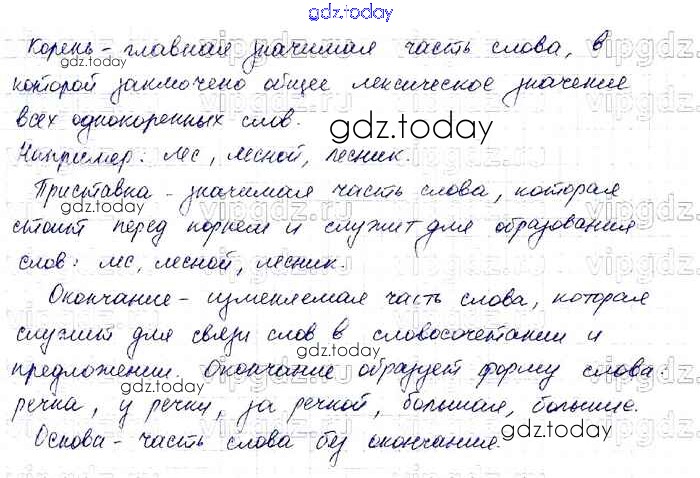 gdz.today
Корень - главная значимая часть слова, в
gdz.today
которой заключено общее лексическое значение
всех однокоренных слов.
gdz.today
Например: лес, лесной, лесник.
Приставка - значимая часть слова, которая
gdz.today
стоит перед корнем и служит для образования
слов: лес, лесной, лесник.
Окончание - изменяемая часть слова, которая
служит для связи слов в словосочетании и
gdz.today
предложении. Окончание образует форму слова:
gdz.today
речка, у речки, за речкой, большая, большие.
gdz.today
Основа - часть слова без окончания.